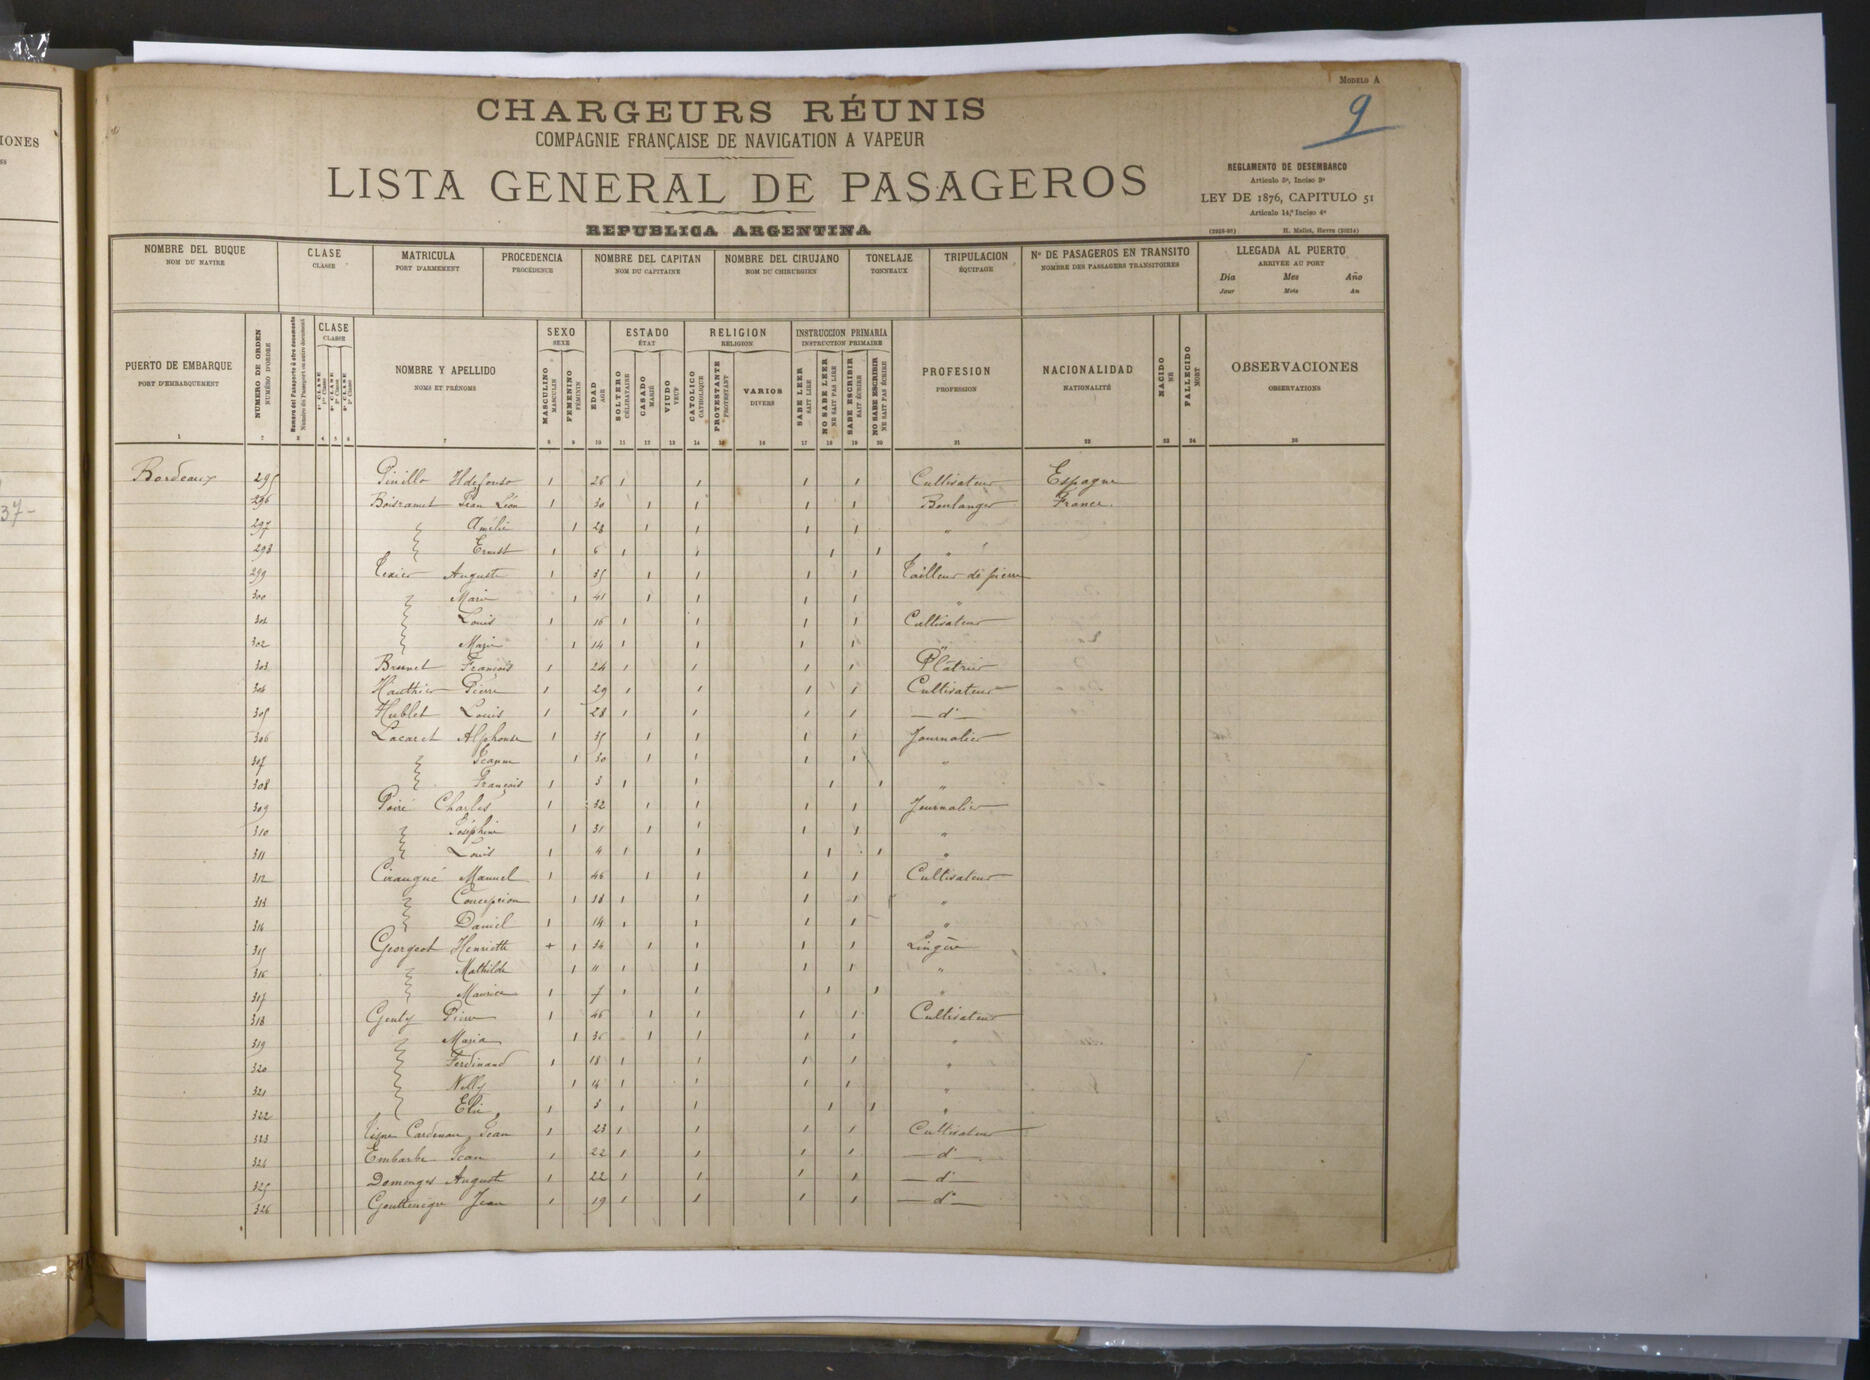 IONES
37-
MODELO A
9
CHARGEURS RÉUNIS
COMPAGNIE FRANÇAISE DE NAVIGATION A VAPEUR
LISTA GENERAL DE PASAGEROS
REPUBLICA ARGENTINA
REGLAMENTO DE DESEMBARCO
LEY DE 1876, CAPITULO 51
Articulo 14,º Inciso 4º
NOMBRE DEL BUQUE CLASE MATRICULA PROCEDENCIA NOMBRE DEL CAPITAN NOMBRE DEL CIRUJANO TONELAJE TRIPULACION Nº DE PASAGEROS EN TRANSITO LLEGADA AL PUERTO
NOM DU NAVIRE CLASSE PORT D'ARMEMENT PROCÉDENCE NOM DU CAPITAINE NOM DU CHIRURGIEN TONNEAUX ÉQUIPAGE NOMBRE DES PASSAGERS TRANSITOIRES ARRIVÉE AU PORT
Dia Mes Año
Jour Mois An
PUERTO DE EMBARQUE NUMERO DE ORDEN CLASE NOMBRE Y APELLIDO SEXO EDAD ESTADO RELIGION INSTRUCCION PRIMARIA PROFESION NACIONALIDAD NACIDO FALLECIDO OBSERVACIONES
PORT D'EMBARQUEMENT NUMÉRO D'ORDRE CLASSE NOMS ET PRÉNOMS SEXE AGE ÉTAT RELIGION INSTRUCTION PRIMAIRE PROFESSION NATIONALITÉ NÉ MORT OBSERVATIONS
MASCULINO FEMENINO SOLTERO CASADO VIUDO CATOLICO PROTESTANTE VARIOS SABE LEER NO SABE LEER SABE ESCRIBIR NO SABE ESCRIBIR
MASCULIN FÉMININ CÉLIBATAIRE MARIÉ VEUF CATHOLIQUE PROTESTANT DIVERS SAIT LIRE NE SAIT PAS LIRE SAIT ÉCRIRE NE SAIT PAS ÉCRIRE
Bordeaux 295 Pinillo Ildefonso 1 26 1 1 1 1 Cultivateur Espagne
296 Boisramet Jean Léon 1 30 1 1 1 1 Boulanger France
297 Amélie 1 28 1 1 1 1 "
298 Ernest 1 6 1 1 1 1 "
299 Texier Auguste 1 35 1 1 1 1 Tailleur de pierre
300 Marie 1 41 1 1 1 1 "
301 Louis 1 16 1 1 1 1 Cultivateur
302 Marie 1 14 1 1 1 1 "
303 Brunet François 1 24 1 1 1 1 Plâtrier
304 Hauthier Pierre 1 29 1 1 1 1 Cultivateur
305 Hublet Louis 1 28 1 1 1 1 — d° —
306 Lacaret Alphonse 1 35 1 1 1 1 Journalier
307 Jeanne 1 30 1 1 1 1 "
308 François 1 3 1 1 1 1 "
309 Poiré Charles 1 32 1 1 1 1 Journalier
310 Joséphine 1 31 1 1 1 1 "
311 Louis 1 4 1 1 1 1 "
312 Manuel 1 46 1 1 1 1 Cultivateur
313 Concepcion 1 18 1 1 1 1 "
314 Daniel 1 14 1 1 1 1 "
315 Georgeot Henriette + 1 34 1 1 1 1 Lingère
316 Mathilde 1 11 1 1 1 1 "
317 Maurice 1 7 1 1 1 1 "
318 Genty Pierre 1 46 1 1 1 1 Cultivateur
319 Maria 1 36 1 1 1 1 "
320 Ferdinand 1 18 1 1 1 1 "
321 Nelly 1 14 1 1 1 1 "
322 Elie 1 3 1 1 1 1 "
323 Jean 1 23 1 1 1 1 Cultivateur
324 Embarbe Jean 1 22 1 1 1 1 — d° —
325 Domenges Auguste 1 22 1 1 1 1 — d° —
326 Jean 1 19 1 1 1 1 — d° —